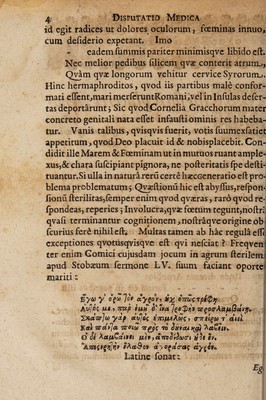 4 DISPUTATIO MEDICA
id egit radices ut dolores oculorum, fœminas innuo,
cum desiderio expetant. Imo
eadem summis pariter minimisque libido est.
Nec melior pedibus silicem quæ conterit atrum,
Quàm quæ longorum vehitur cervice Syrorum.
Hinc hermaphroditos, quod iis partibus malè confor-
mati essent, mari merserunt Romani, vel in Insulas deser-
tas deportârunt; Sic quod Cornelia Gracchorum mater
concreto genitali nata esset infausti ominis res habeba-
tur. Vanis talibus, quisquis fuerit, votis suum exsatiet
appetitum, quod Deo placuit id & nobis placebit. Con-
didit ille Marem & Fœminam ut in mutuos ruant ample-
xus, & chara suscipiant pignora, ne posteritatis spe desti-
tuantur. Si ulla in naturâ rerũ certè hæc generatio est pro-
blema problematum; Quæstionũ hic est abyssus, respon-
sionũ sterilitas, semper enim quod quæras, rarò quod re-
spondeas, reperies, Involucra, quæ fœtum tegunt, nostrę
quasi terminantur cognitionem, nostrâque origine ob-
scurius ferè nihil est. Multas tamen ab hâc regulâ esse
exceptiones quotusquisque est qui nesciat? Frequen-
ter enim Comici cujusdam jocum in agrum sterilem
apud Stobæum sermone LV. suum faciant oporte
mariti:
Latine sonat:
Eg